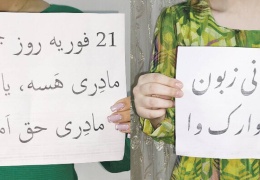 21 فوریه روز
مادِری هَسه، یا
مادِری حق اَم
نی زبون
وارک وا